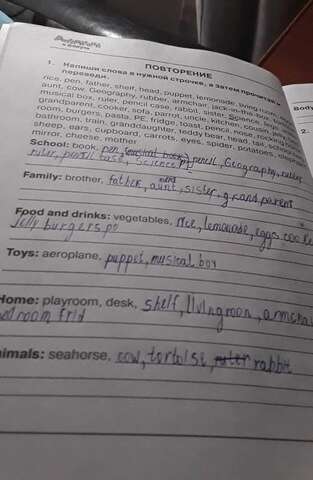 ПОВТОРЕНИЕ
1. Напиши слова в нужной строчке, а затем прочитай и
переведи.
rice, pen, father, shelf, head, puppet, lemonade, living room,
aunt, cow, Geography, rubber, armchair, jack-in-the-box,
musical box, ruler, pencil case, rabbit, sister, Science,
grandparent, cooker, sofa, parrot, uncle, kitchen, cousin,
room, burgers, pasta, PE, fridge, toast, pencil, nose,
bathroom, train, granddaughter, teddy bear, head, tail,
sheep, ears, cupboard, carrots, eyes, spider, potatoes,
mirror, cheese, mother
School: book, pen, pencil, Geography, rubber
ruler, pencil case, Science
Family: brother, father, aunt, sister, grandparent
Food and drinks: vegetables, rice, lemonade, eggs,
Jelly burgers
Toys: aeroplane, puppet, musical box
Home: playroom, desk, shelf, living room, armchai
nimals: seahorse, cow, tortoise, rabbit
Body
2.